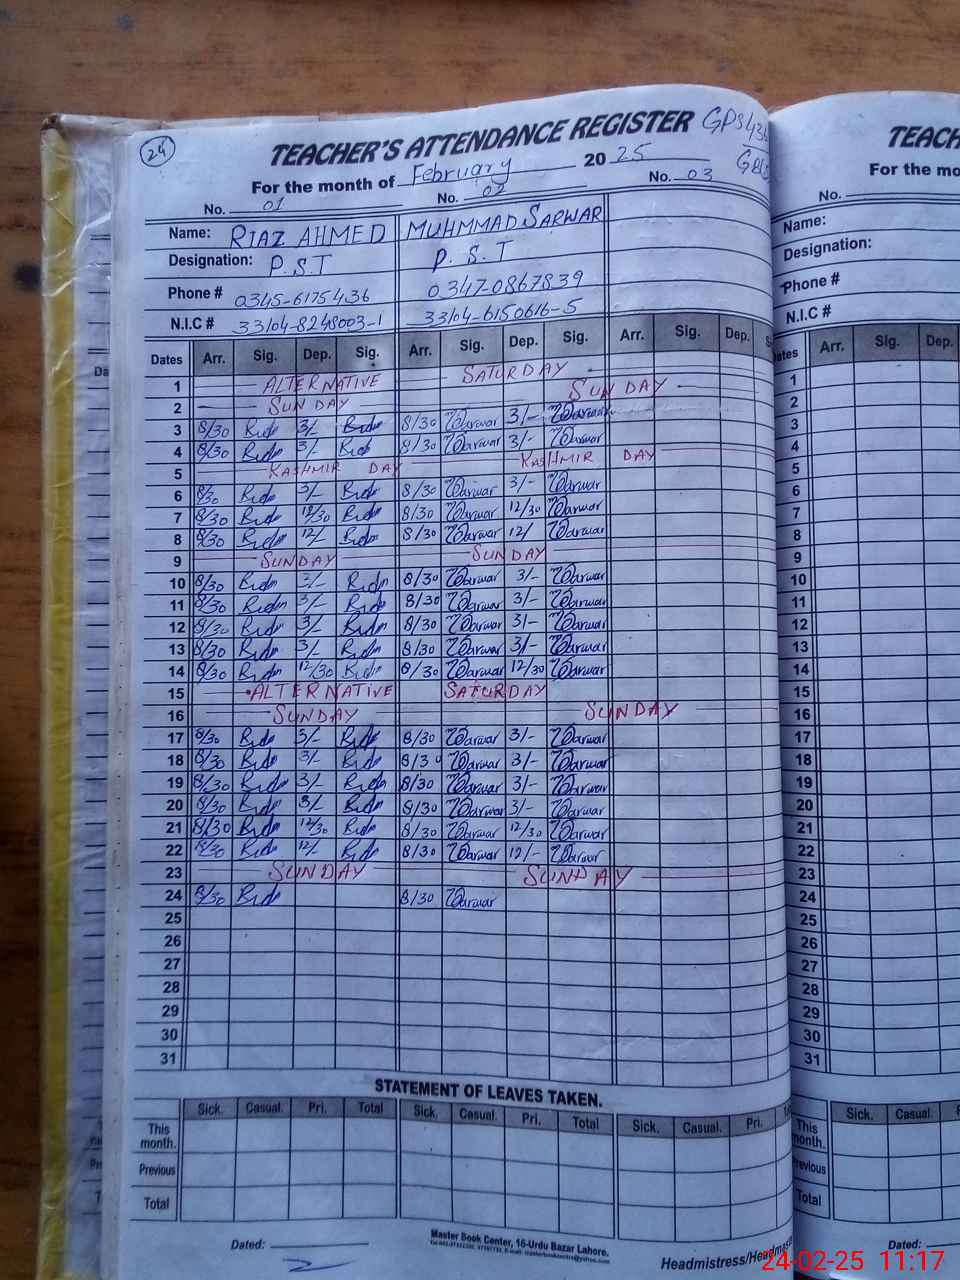 24
TEACHER'S ATTENDANCE REGISTER GPS 436
For the month of February 20 25
No. 01 No. 02 No. 03
Name: RIAZ AHMED MUHMMAD SARWAR
Designation: P.S.T P.S.T
Phone # 0345-6175436 0347-0867839
N.I.C # 33104-8248003-1 33104-6150616-5
Dates Arr. Sig. Dep. Sig. Arr. Sig. Dep. Sig. Arr. Sig. Dep.
1 ALTERNATIVE SATURDAY
2 SUNDAY SUNDAY
3 8/30 3/- 8/30 Sarwar 3/- Sarwar
4 8/30 3/- 8/30 Sarwar 3/- Sarwar
5 KASHMIR DAY KASHMIR DAY
6 8/30 3/- 8/30 Sarwar 3/- Sarwar
7 8/30 12/30 8/30 Sarwar 12/30 Sarwar
8 8/30 12/ 8/30 Sarwar 12/ Sarwar
9 SUNDAY SUNDAY
10 8/30 3/- 8/30 Sarwar 3/- Sarwar
11 8/30 3/- 8/30 Sarwar 3/- Sarwar
12 8/30 3/- 8/30 Sarwar 3/- Sarwar
13 8/30 3/- 8/30 Sarwar 3/- Sarwar
14 8/30 12/30 8/30 Sarwar 12/30 Sarwar
15 ALTERNATIVE SATURDAY
16 SUNDAY SUNDAY
17 8/30 3/- 8/30 Sarwar 3/- Sarwar
18 8/30 3/- 8/30 Sarwar 3/- Sarwar
19 8/30 3/- 8/30 Sarwar 3/- Sarwar
20 8/30 3/- 8/30 Sarwar 3/- Sarwar
21 8/30 12/30 8/30 Sarwar 12/30 Sarwar
22 8/30 12/ 8/30 Sarwar 12/- Sarwar
23 SUNDAY SUNDAY
24 8/30 8/30 Sarwar
25
26
27
28
29
30
31
STATEMENT OF LEAVES TAKEN.
Sick. Casual. Pri. Total Sick. Casual. Pri. Total Sick. Casual. Pri.
This month.
Previous
Total
Dated:
Master Book Center, 16-Urdu Bazar Lahore.
Headmistress/Headmas
TEACH
For the mo
No.
Name:
Designation:
Phone #
N.I.C #
Dates Arr. Sig. Dep.
1
2
3
4
5
6
7
8
9
10
11
12
13
14
15
16
17
18
19
20
21
22
23
24
25
26
27
28
29
30
31
Sick. Casual.
This month.
Previous
Total
Dated:
24-02-25 11:17